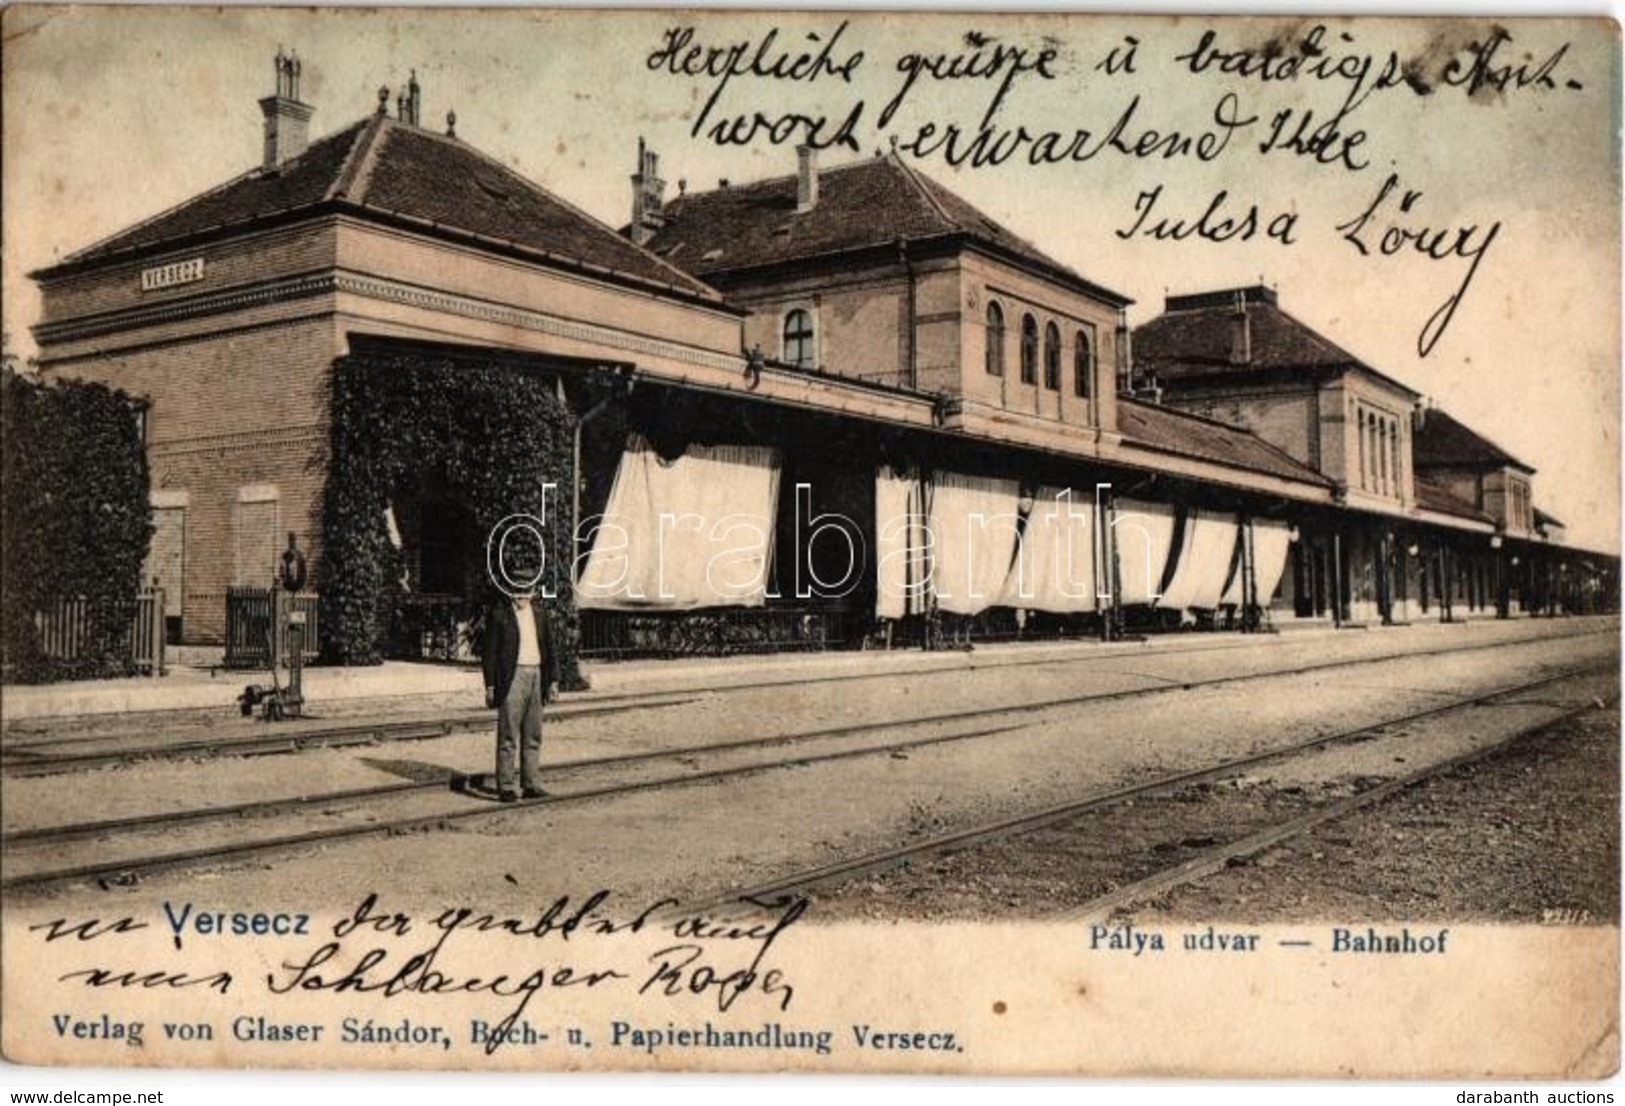 Herzliche grüsze ü baldigst Ant-
wort erwartend Ihre
Julcsa Löwy
VERSECZ
darabanth
in Versecz da giebt es auch
nein Schlanger
Pálya udvar — Bahnhof
Verlag von Glaser Sándor, Buch- u. Papierhandlung Versecz.
www.delcampe.net
darabanth auctions